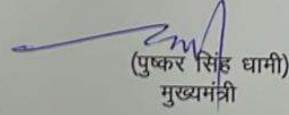 (पुष्कर सिंह धामी)
मुख्यमंत्री